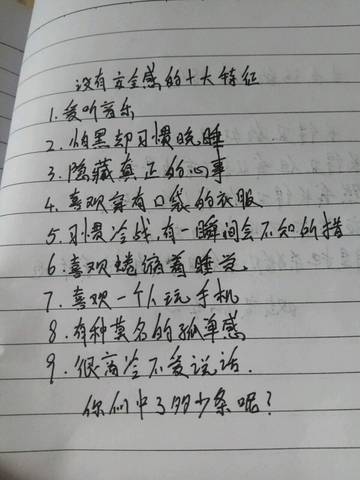 没有安全感的十大特征
1.爱听音乐
2.怕黑却习惯晚睡
3.隐藏真正的心事
4.喜欢穿有口袋的衣服
5.习惯冷战,有一瞬间会不知所措
6.喜欢蜷缩着睡觉.
7.喜欢一个人玩手机
8.有种莫名的孤单感
9.很高冷不爱说话.
你们中了多少条呢?